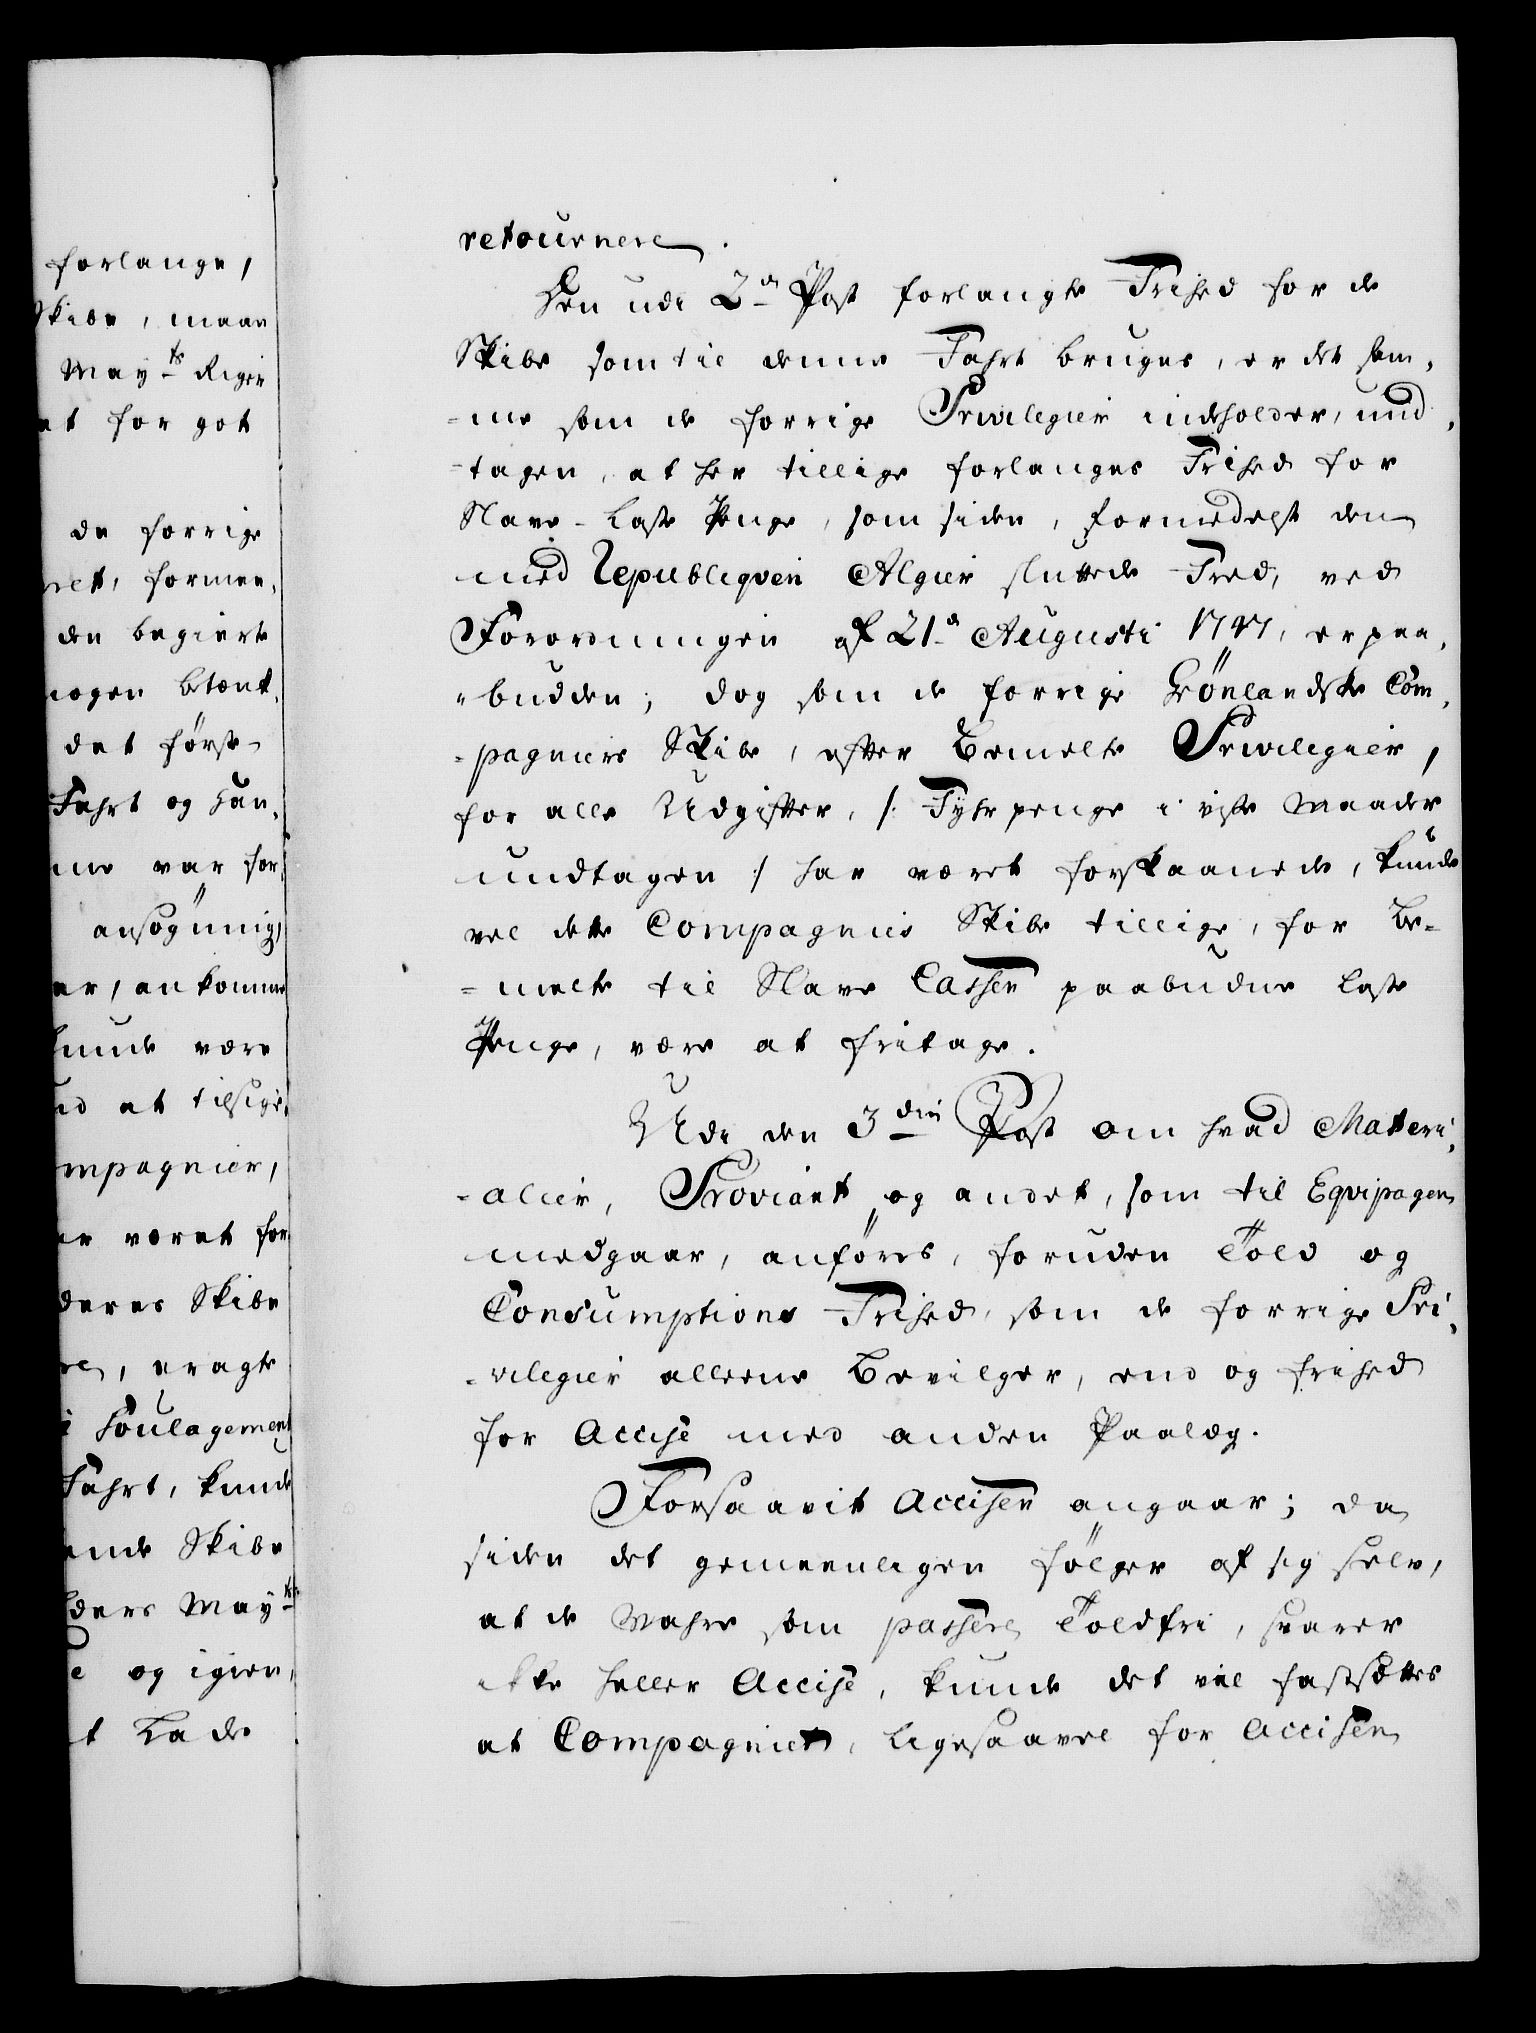 forlange,
Skibe, maae
Mayts Riger
at for got
de forrige
ret, formee,
den begierte
nogen betænk,
det første
Fahrt og Han,
me var for,
ansøgning,
er, ankomme
kunde være
ud at tilsige,
mpagnier,
er været for
deres Skibe
re, eragte
i Soulagement
Fahrt, kunde
ende Skibe
ders Mayts
e og igien,
t Lade
retournere.
Den udi 2n Post forlangte Frihed for de
Skibe som til denne Fahrt bruges, er det sam,
-me som de forrige Privilegier indeholder, und,
-tagen, at her tillige forlanges Frihed for
Slave-Laste Penge, som siden, formedelst den
med Republiqven Algier sluttede Fred, ved
Forordningen af 21de Augusti 1747, er paa,
-budden; dog som de forrige Grönlandske Com,
-pagniers Skibe, efter bemelte Privilegier,
for alle Udgifter, /: Fyhrpenge i visse Maader
undtagen :/ har været forskaanede, kunde
vel dette Compagnies Skibe tillige, for be=
=melte til Slave Cassen paabudne Laste
Penge, være at fritage.
Udi den 3die Post om hvad Materi,
-alier, Proviant og andet, som til Eqvipagen
medgaar, anføres, foruden Told og
Consumptions Frihed, som de forrige Pri,
-vilegier alleene bevilger, end og frihed
for Accise med anden Paalæg.
Forsaavit Accisen angaar; da
siden det gemeenligen følger af sig selv,
at de Wahre som passere Toldfri, svarer
ikke heller Accise, kunde det vel fastsættes
at Compagniet, ligesaavel for Accisen